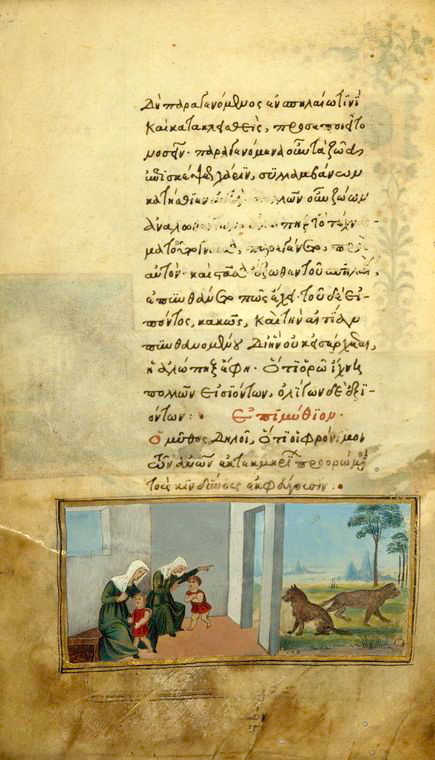 Δὴ παραγενόμενος ἐν σπηλαίῳ τινὶ
καὶ κατακλιθεὶς, προσεποιεῖτο
νοσεῖν· παραγενόμενα οὖν τὰ ζῷα
συλλαμβάνων
κατήσθιεν πολλῶν οὖν ζῴων
τὸ τέχνα-
παρεγένετο, πρὸς
αὐτὸν· καὶ στᾶσα ἔξωθεν τοῦ σπηλαίου,
ἐπυνθάνετο πῶς ἔχει· τοῦ δὲ εἰ-
πόντος, κακῶς, καὶ τὴν αἰτίαν
πυνθανομένου δι' ἣν οὐκ εἰσέρχεται,
ἡ ἀλώπηξ ἔφη· ὅτι ὁρῶ ἴχνη
πολλῶν εἰσιόντων, ὀλίγων δὲ ἐξι-
όντων: Ἐπιμύθιον·
Ὁ μῦθος δηλοῖ, ὅτι οἱ φρόνιμοι
τῶν ἀνθρώπων ἐκ τεκμηρίων προορώμενοι
τοὺς κινδύνους ἐκφεύγουσιν: